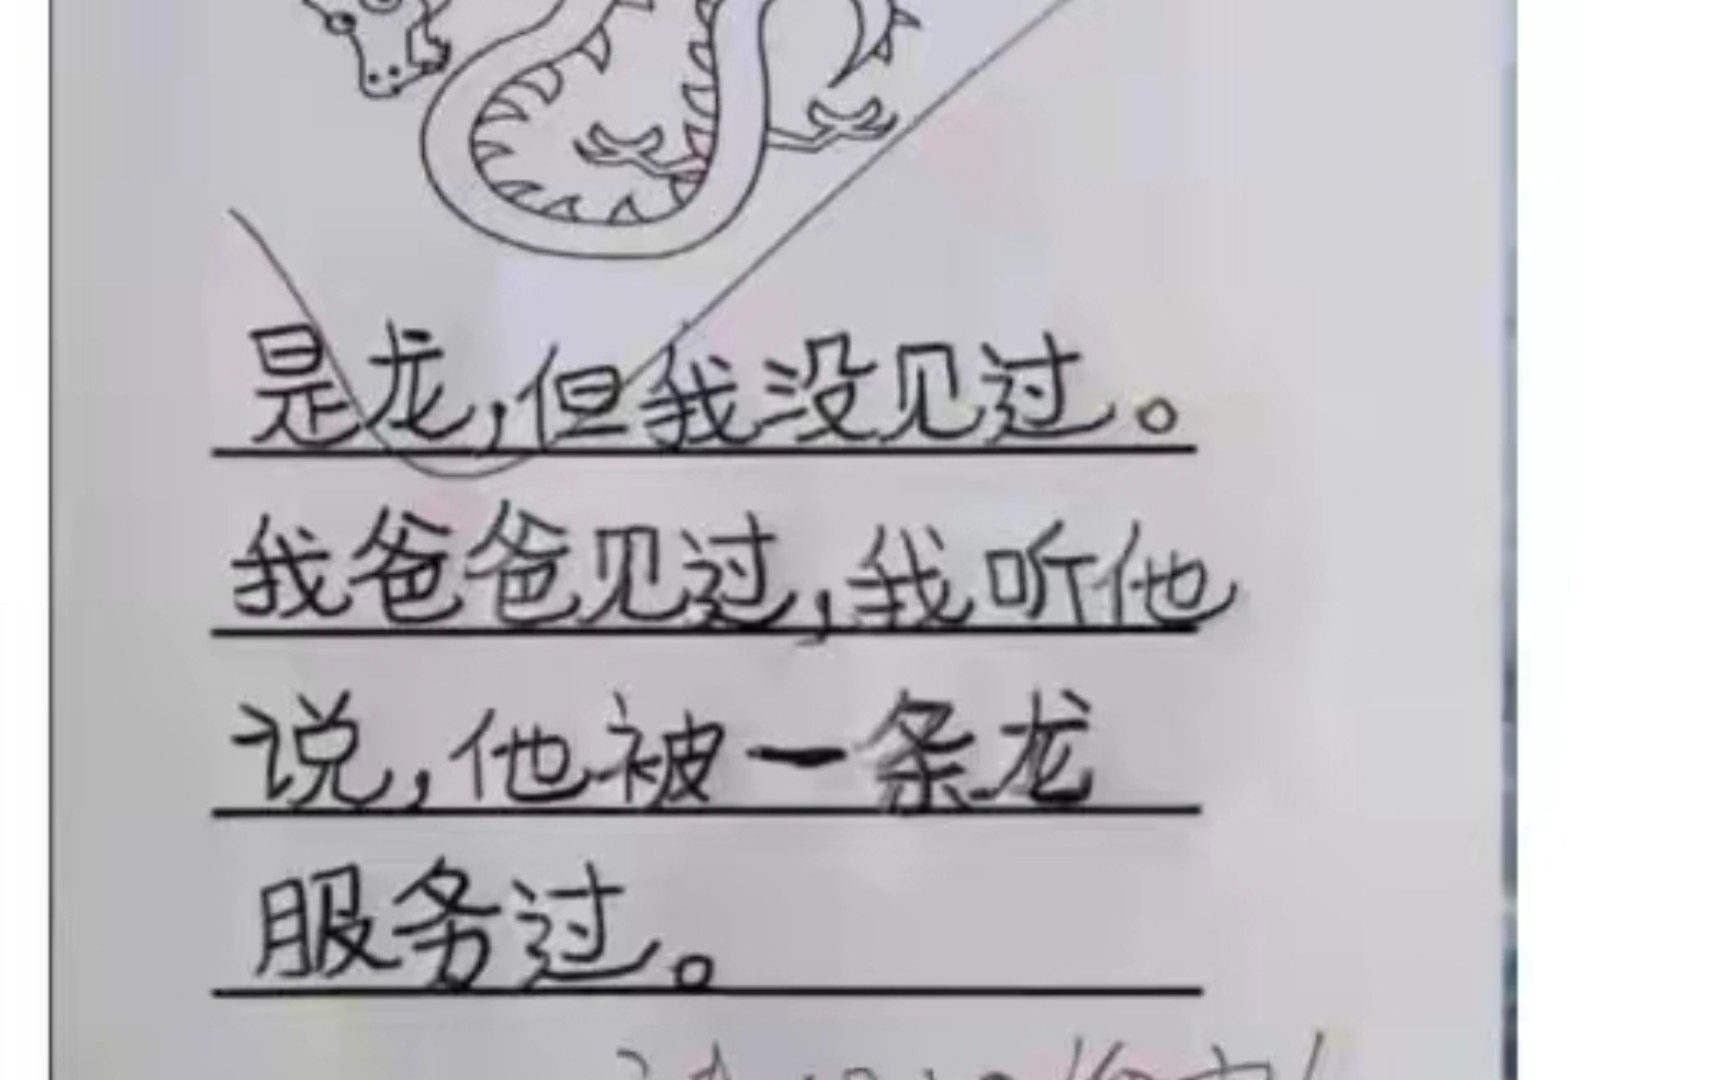 是龙,但我没见过。
我爸爸见过,我听他
说,他被一条龙
服务过。